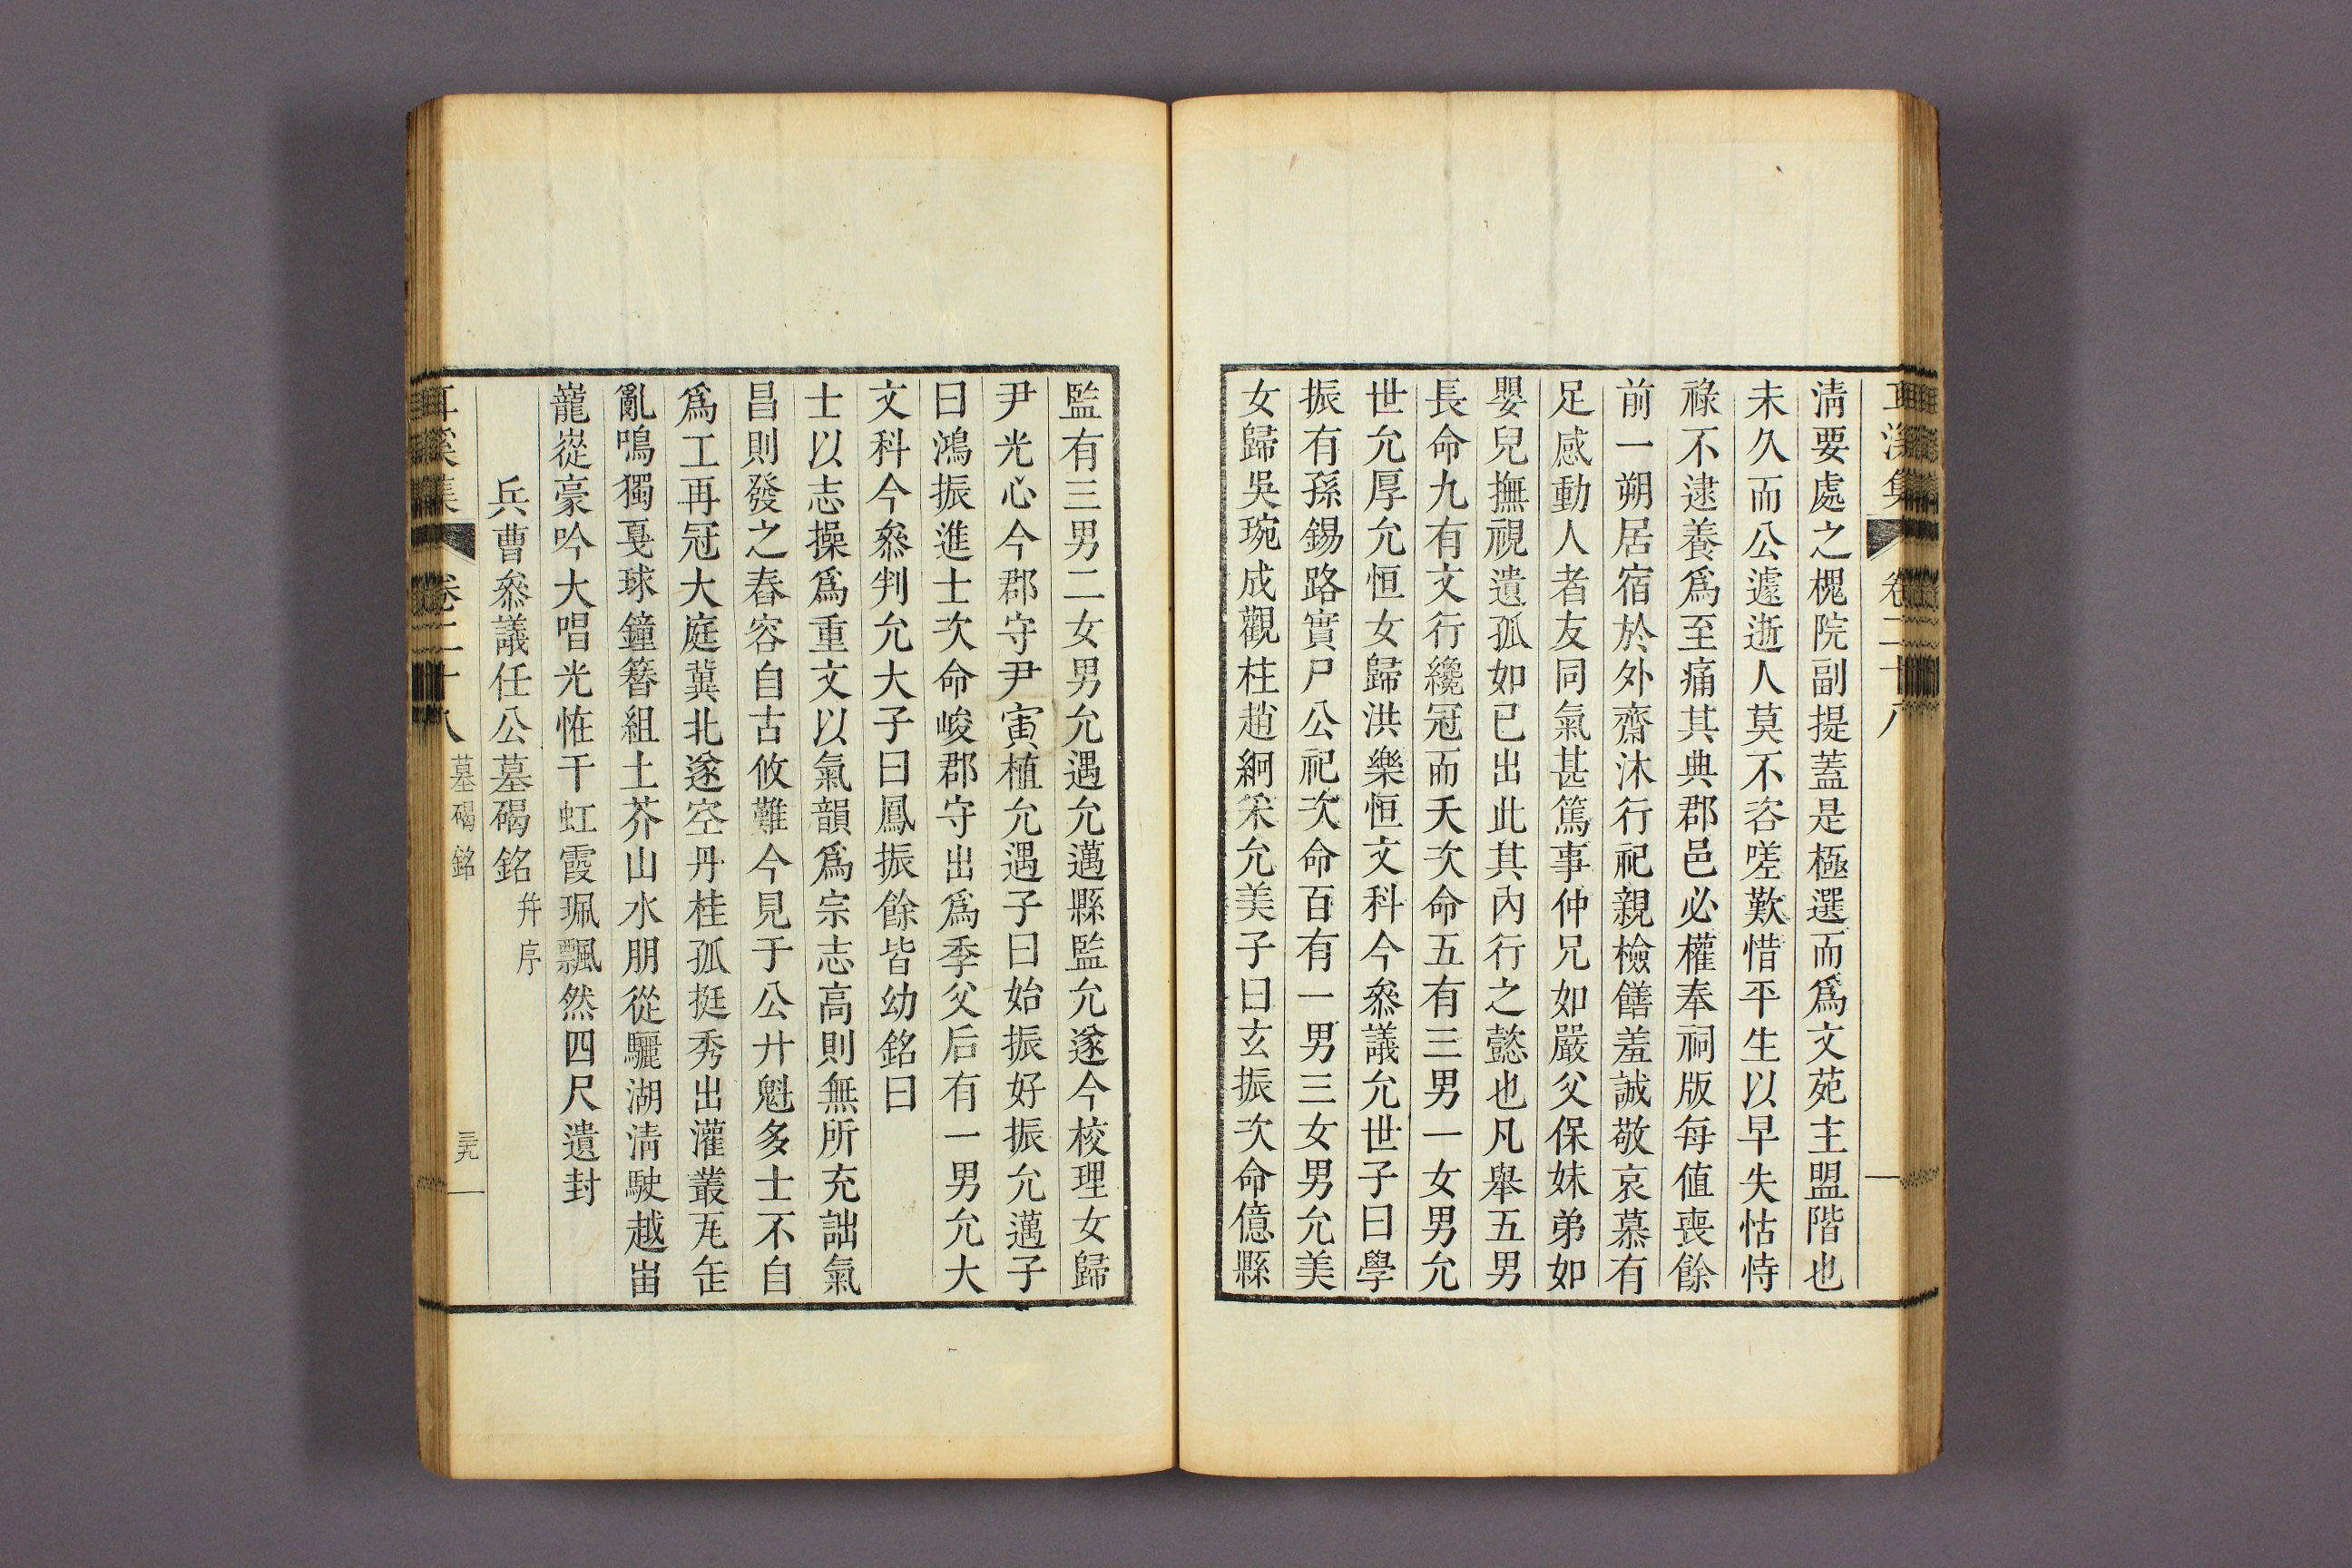 耳溪集 卷二十八
清要處之槐院副提蓋是極選而爲文苑主盟階也
未久而公遽逝人莫不咨嗟歎惜平生以早失怙恃
祿不逮養爲至痛其典郡邑必權奉祠版每值喪餘
前一朔居宿於外齋沐行祀親檢饍羞誠敬哀慕有
足感動人者友同氣甚篤事仲兄如嚴父保妹弟如
嬰兒撫視遺孤如已出此其內行之懿也凡舉五男
長命九有文行纔冠而夭次命五有三男一女男允
世允厚允恒女歸洪樂恒文科今叅議允世子曰學
振有孫錫路實尸公祀次命百有一男三女男允美
女歸吳琬成觀柱趙絅采允美子曰玄振次命億縣
監有三男二女男允遇允邁縣監允遂今校理女歸
尹光心今郡守尹寅植允遇子曰始振好振允邁子
曰鴻振進士次命峻郡守出爲季父后有一男允大
文科今叅判允大子曰鳳振餘皆幼銘曰
士以志操爲重文以氣韻爲宗志高則無所充詘氣
昌則發之舂容自古攸難今見于公廾魁多士不自
爲工再冠大庭冀北遂空丹桂孤挺秀出灌叢瓦缶
亂鳴獨戛球鐘簪組土芥山水朋從驪湖淸駛越峀
巃嵸豪吟大唱光恠干虹霞珮飄然四尺遺封
兵曹叅議任公墓碣銘 幷序
耳溪集 卷二十八 墓碣銘 三九